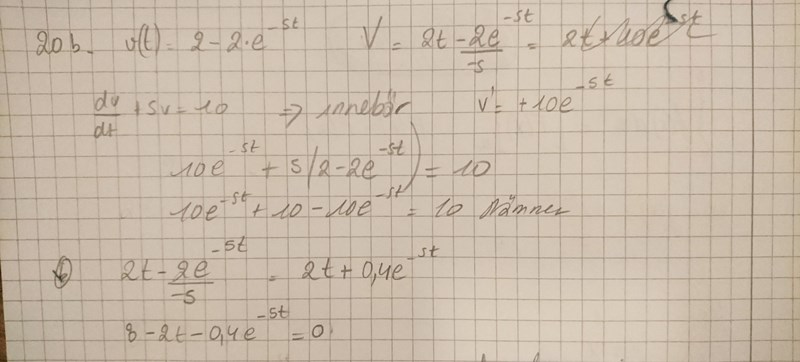 20b. v(t) = 2 - 2·e^-5t V = 2t - 2e^-5t/-5 = 2t + 10e^-5t
dv/dt + 5v = 10 => innebär v' = +10e^-5t
10e^-5t + 5(2-2e^-5t) = 10
10e^-5t + 10 - 10e^-5t = 10 Stämmer
c) 2t - 2e^-5t/-5 = 2t + 0,4e^-5t
8 - 2t - 0,4e^-5t = 0